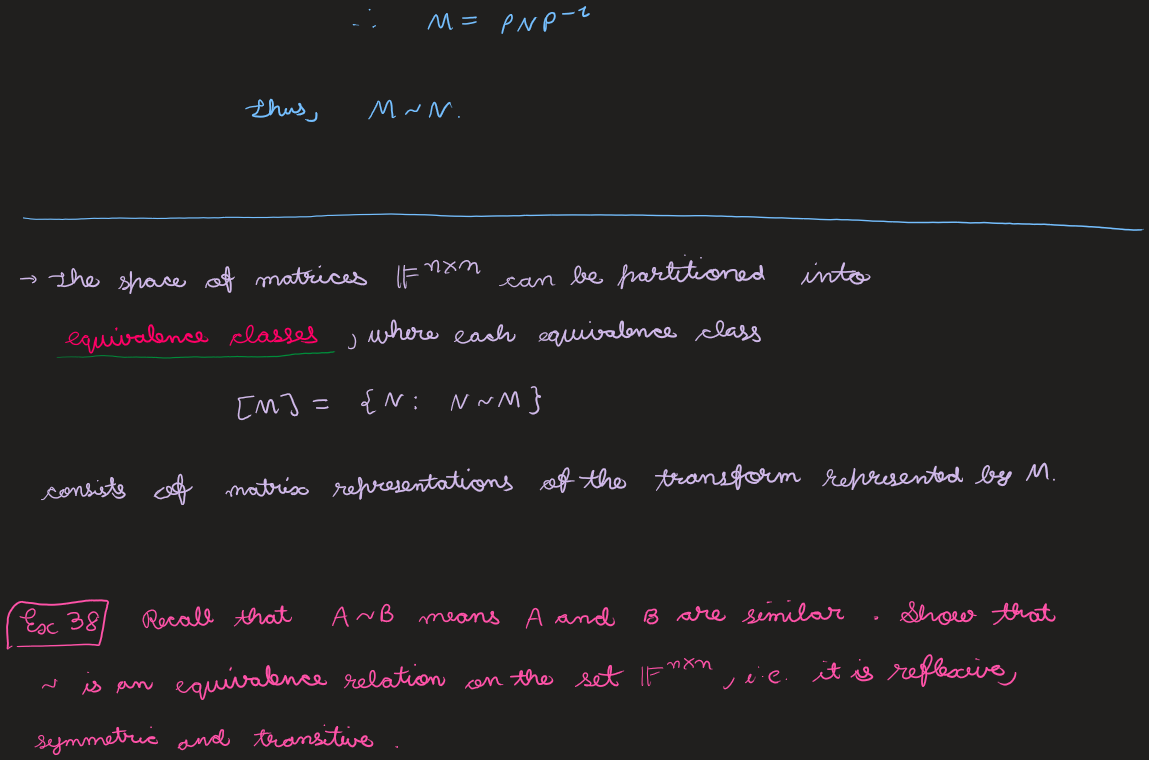 ∴ M = PNP⁻¹
Thus, M ~ N.
→ The space of matrices 𝔽ⁿˣⁿ can be partitioned into
equivalence classes, where each equivalence class
[M] = {N: N ~ M}
consists of matrix representations of the transform represented by M.
Ex 38 Recall that A ~ B means A and B are similar. Show that
~ is an equivalence relation on the set 𝔽ⁿˣⁿ, i.e. it is reflexive,
symmetric and transitive.